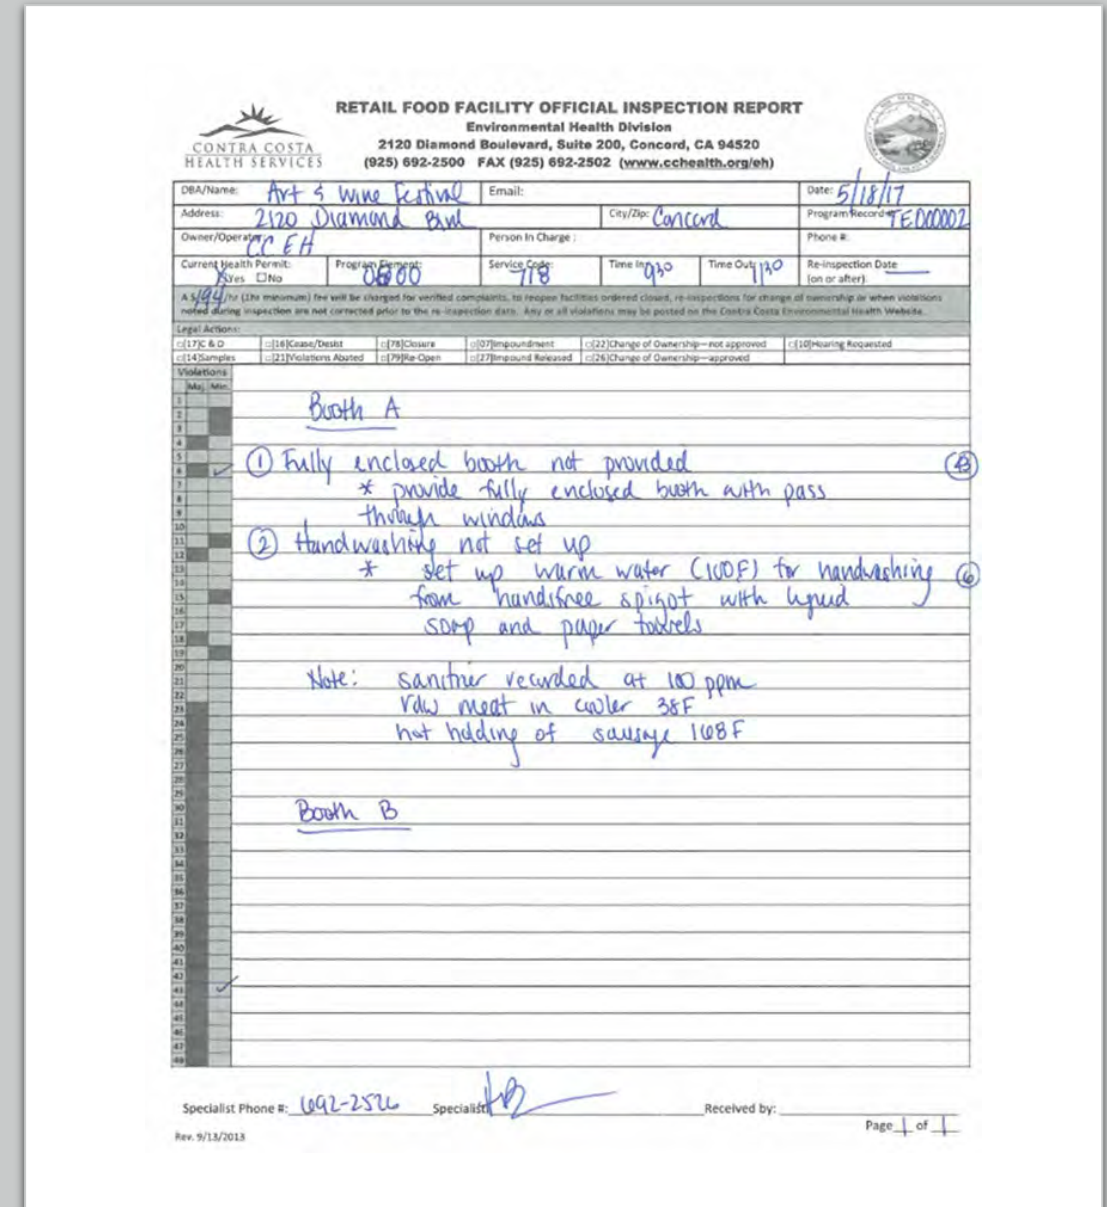 RETAIL FOOD FACILITY OFFICIAL INSPECTION REPORT
Environmental Health Division
2120 Diamond Boulevard, Suite 200, Concord, CA 94520
(925) 692-2500 FAX (925) 692-2502 (www.cchealth.org/eh)
CONTRA COSTA
HEALTH SERVICES
DBA/Name: Art & Wine Festival Email: Date: 5/18/17
Address: 2120 Diamond Blvd City/Zip: Concord Program Record# TE000002
Owner/Operator CCEH Person In Charge: Phone #:
Current Health Permit: Program Element: Service Code: Time In: 930 Time Out: 1130 Re-inspection Date
Yes ☐No 0800 718 (on or after):
A $194/hr (1hr minimum) fee will be charged for verified complaints, to reopen facilities ordered closed, re-inspections for change of ownership or when violations
noted during inspection are not corrected prior to the re-inspection date. Any or all violations may be posted on the Contra Costa Environmental Health Website.
Legal Actions:
□[17]C & D □[16]Cease/Desist □[78]Closure □[07]Impoundment □[22]Change of Ownership—not approved □[10]Hearing Requested
□[14]Samples □[21]Violations Abated □[79]Re-Open □[27]Impound Released □[26]Change of Ownership—approved
Violations
Maj Min
1
2
3
4
5
6
7
8
9
10
11
12
13
14
15
16
17
18
19
20
21
22
23
24
25
26
27
28
29
30
31
32
33
34
35
36
37
38
39
40
41
42
43
44
45
46
47
48
Booth A
① Fully enclosed booth not provided
* provide fully enclosed booth with pass
through windows
② Handwashing not set up
* set up warm water (100F) for handwashing ⑥
from handsfree spigot with liquid
soap and paper towels
Note: sanitizer recorded at 100 ppm
raw meat in cooler 38F
hot holding of sausage 168F
Booth B
Specialist Phone #: 692-2526 Specialist: Received by:
Page 1 of 1
Rev. 9/13/2013